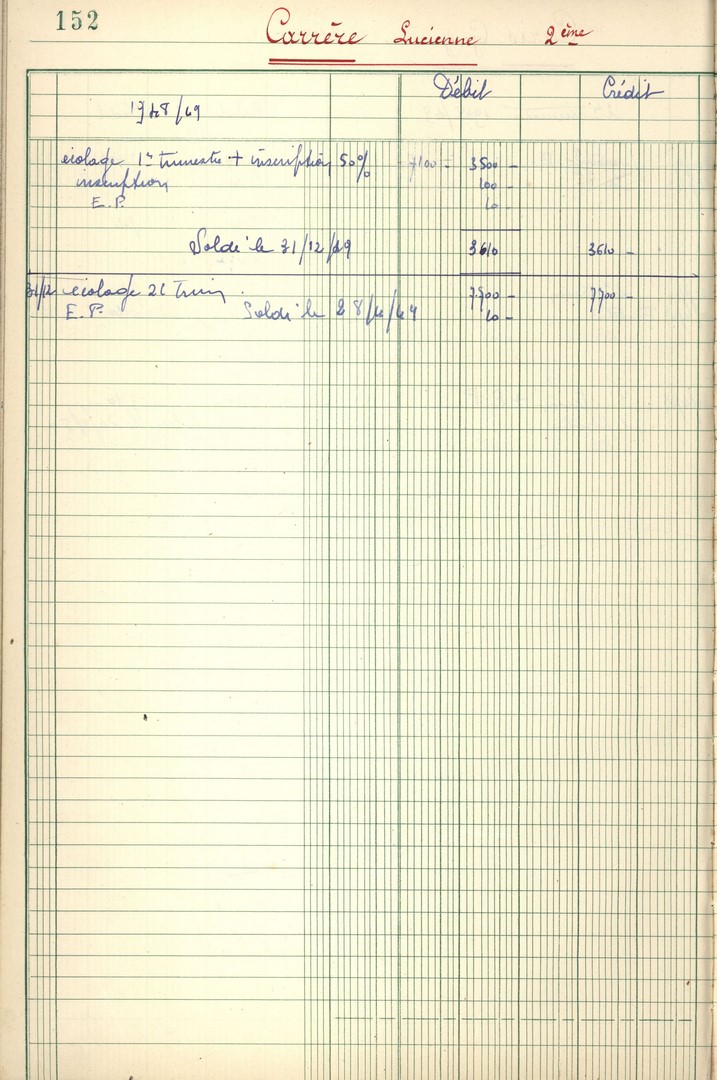 152
Carrère Lucienne 2ème
Débit Crédit
1948/49
écolage 1er trimestre + inscription 50% 7100 - 3500 -
inscription 100 -
E.P. 10 -
Soldé le 31/12/49 3610 3610 -
31/12 écolage 2e Trim. 7700 - 7700 -
E.P. Soldé le 28/4/49 10 -